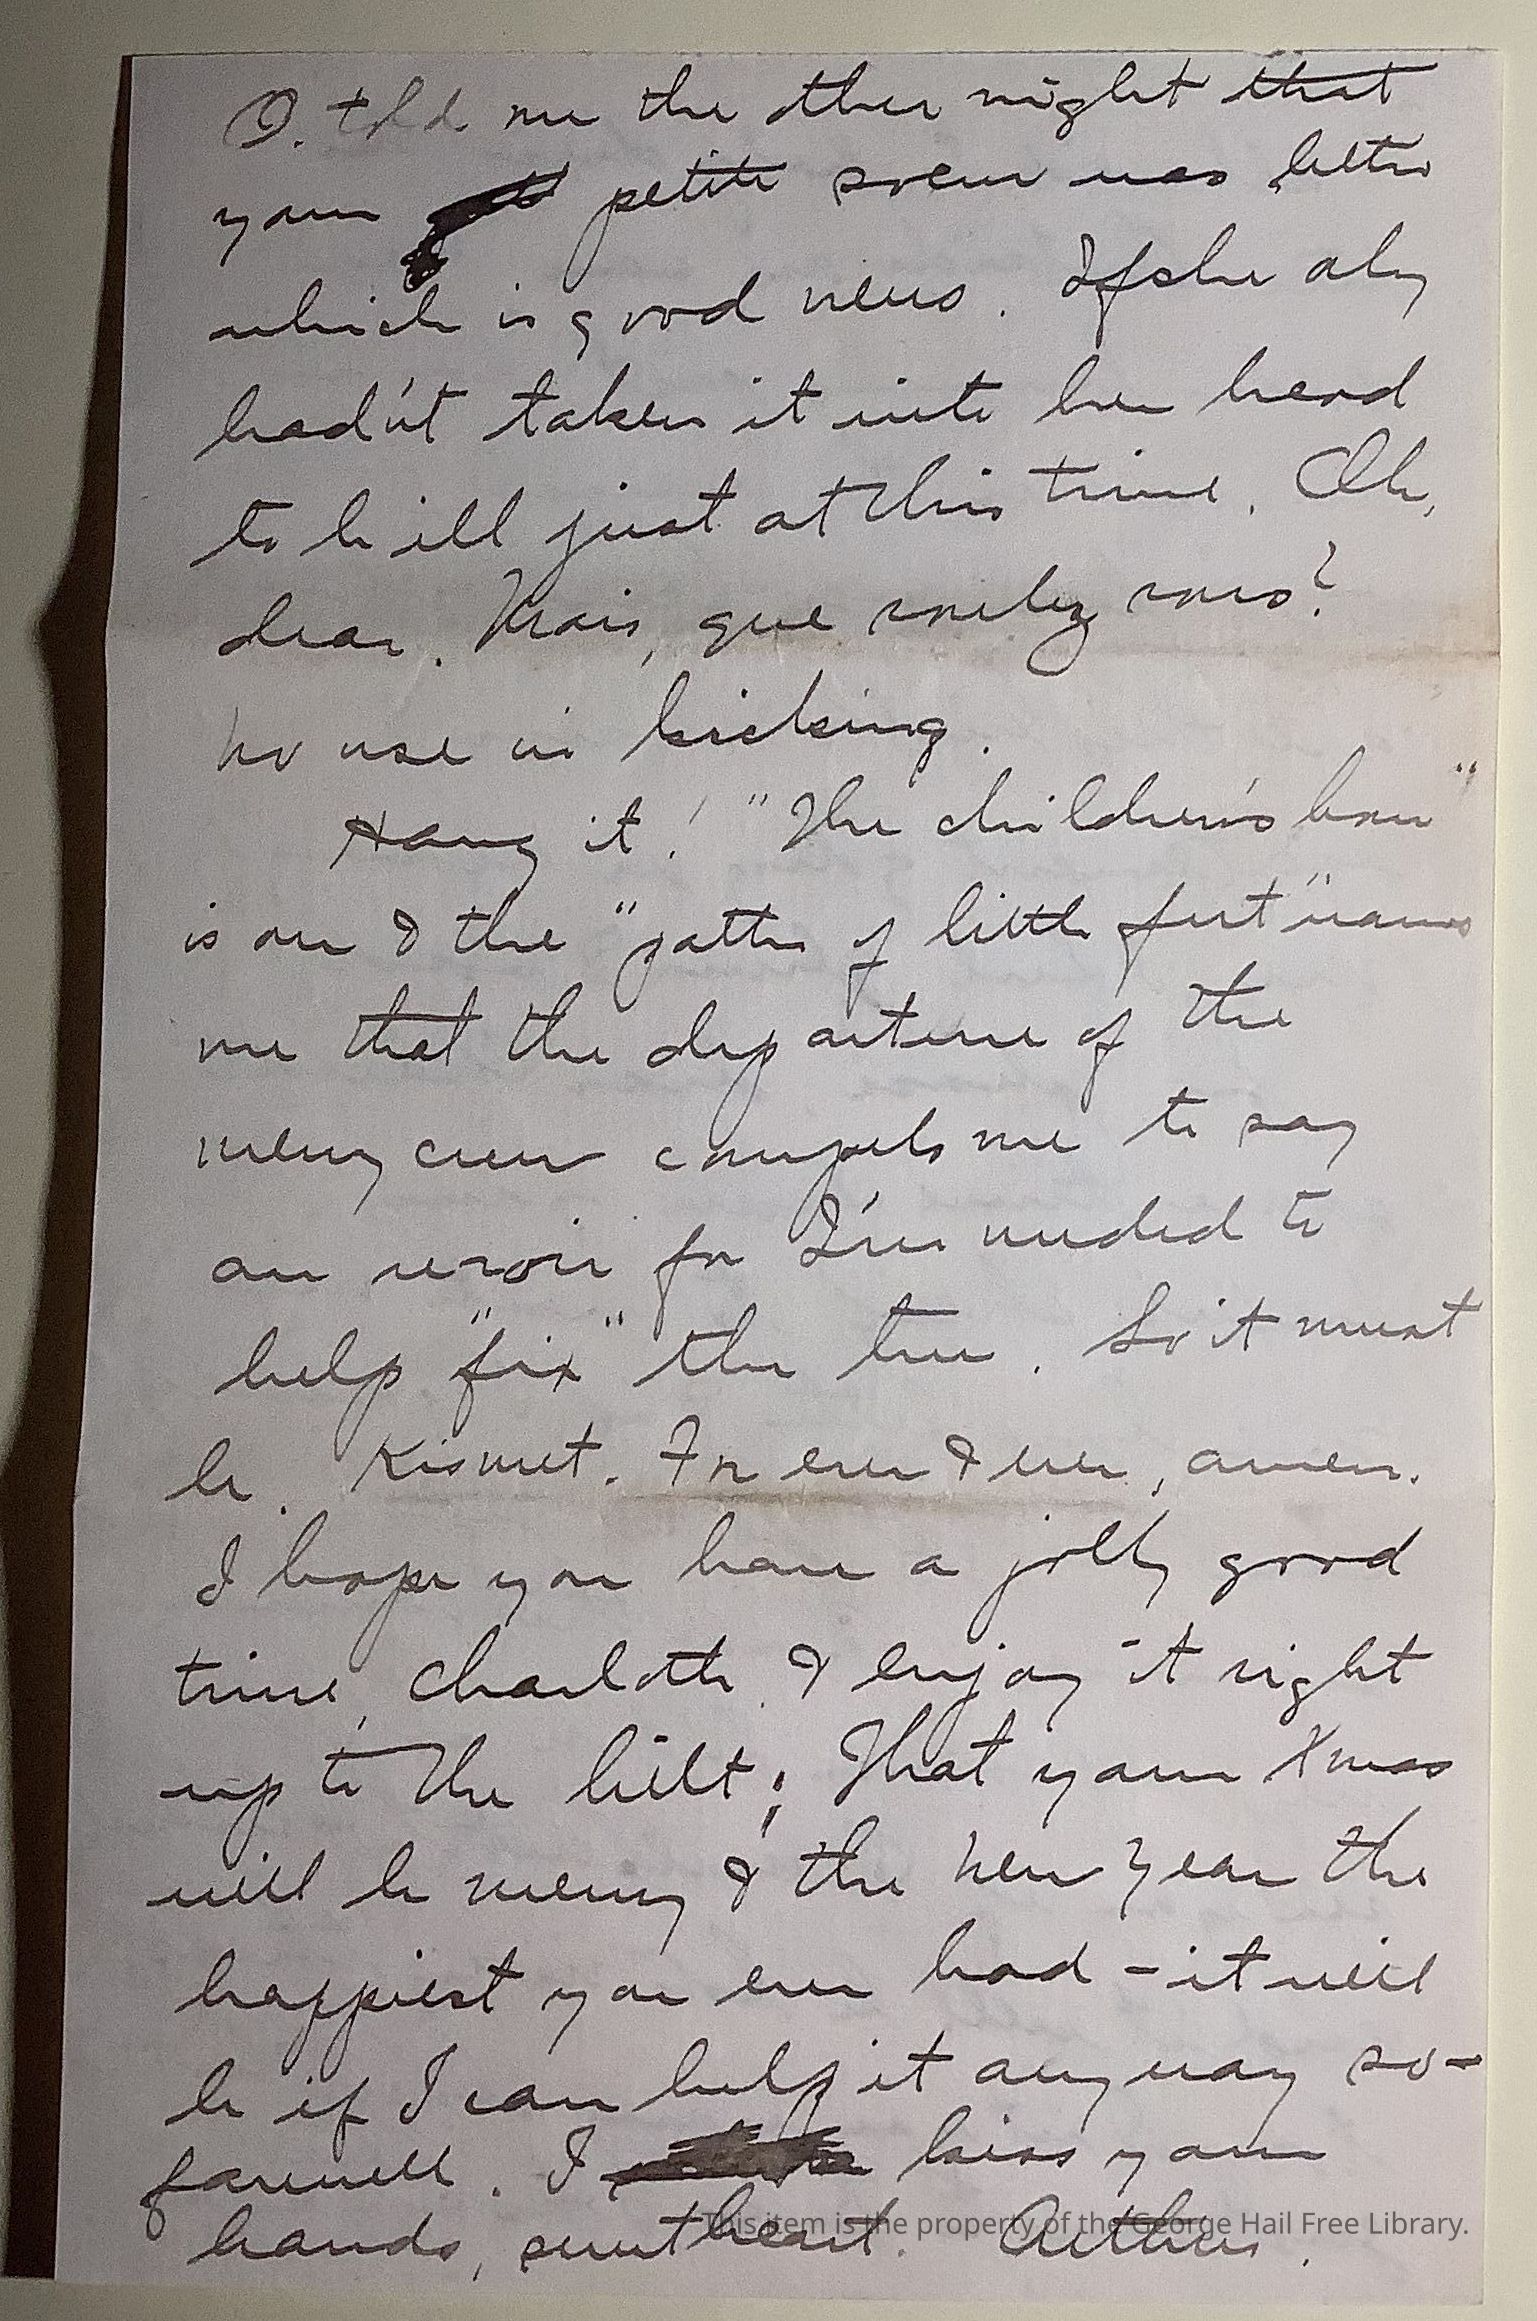 O. told me the other night that
your petite soeur was better
which is good news. If she only
hadn't taken it into her head
to be ill just at this time. Oh,
dear. Mais, que voulez vous?
No use in kicking.
Hang it! "The children's hour"
is on & the "patter of little feet" warns
me that the departure of the
merry crew compels me to say
au revoir for I'm needed to
help "fix" the tree. So it must
be. Kismet. For ever & ever, amen.
I hope you have a jolly good
time, Charlotte, & enjoy it right
up to the hilt; That your Xmas
will be merry & the New Year the
happiest you ever had - it will
be if I can help it anyway so-
farewell. I kiss your
hands, sweetheart. Arthur.
This item is the property of the George Hail Free Library.